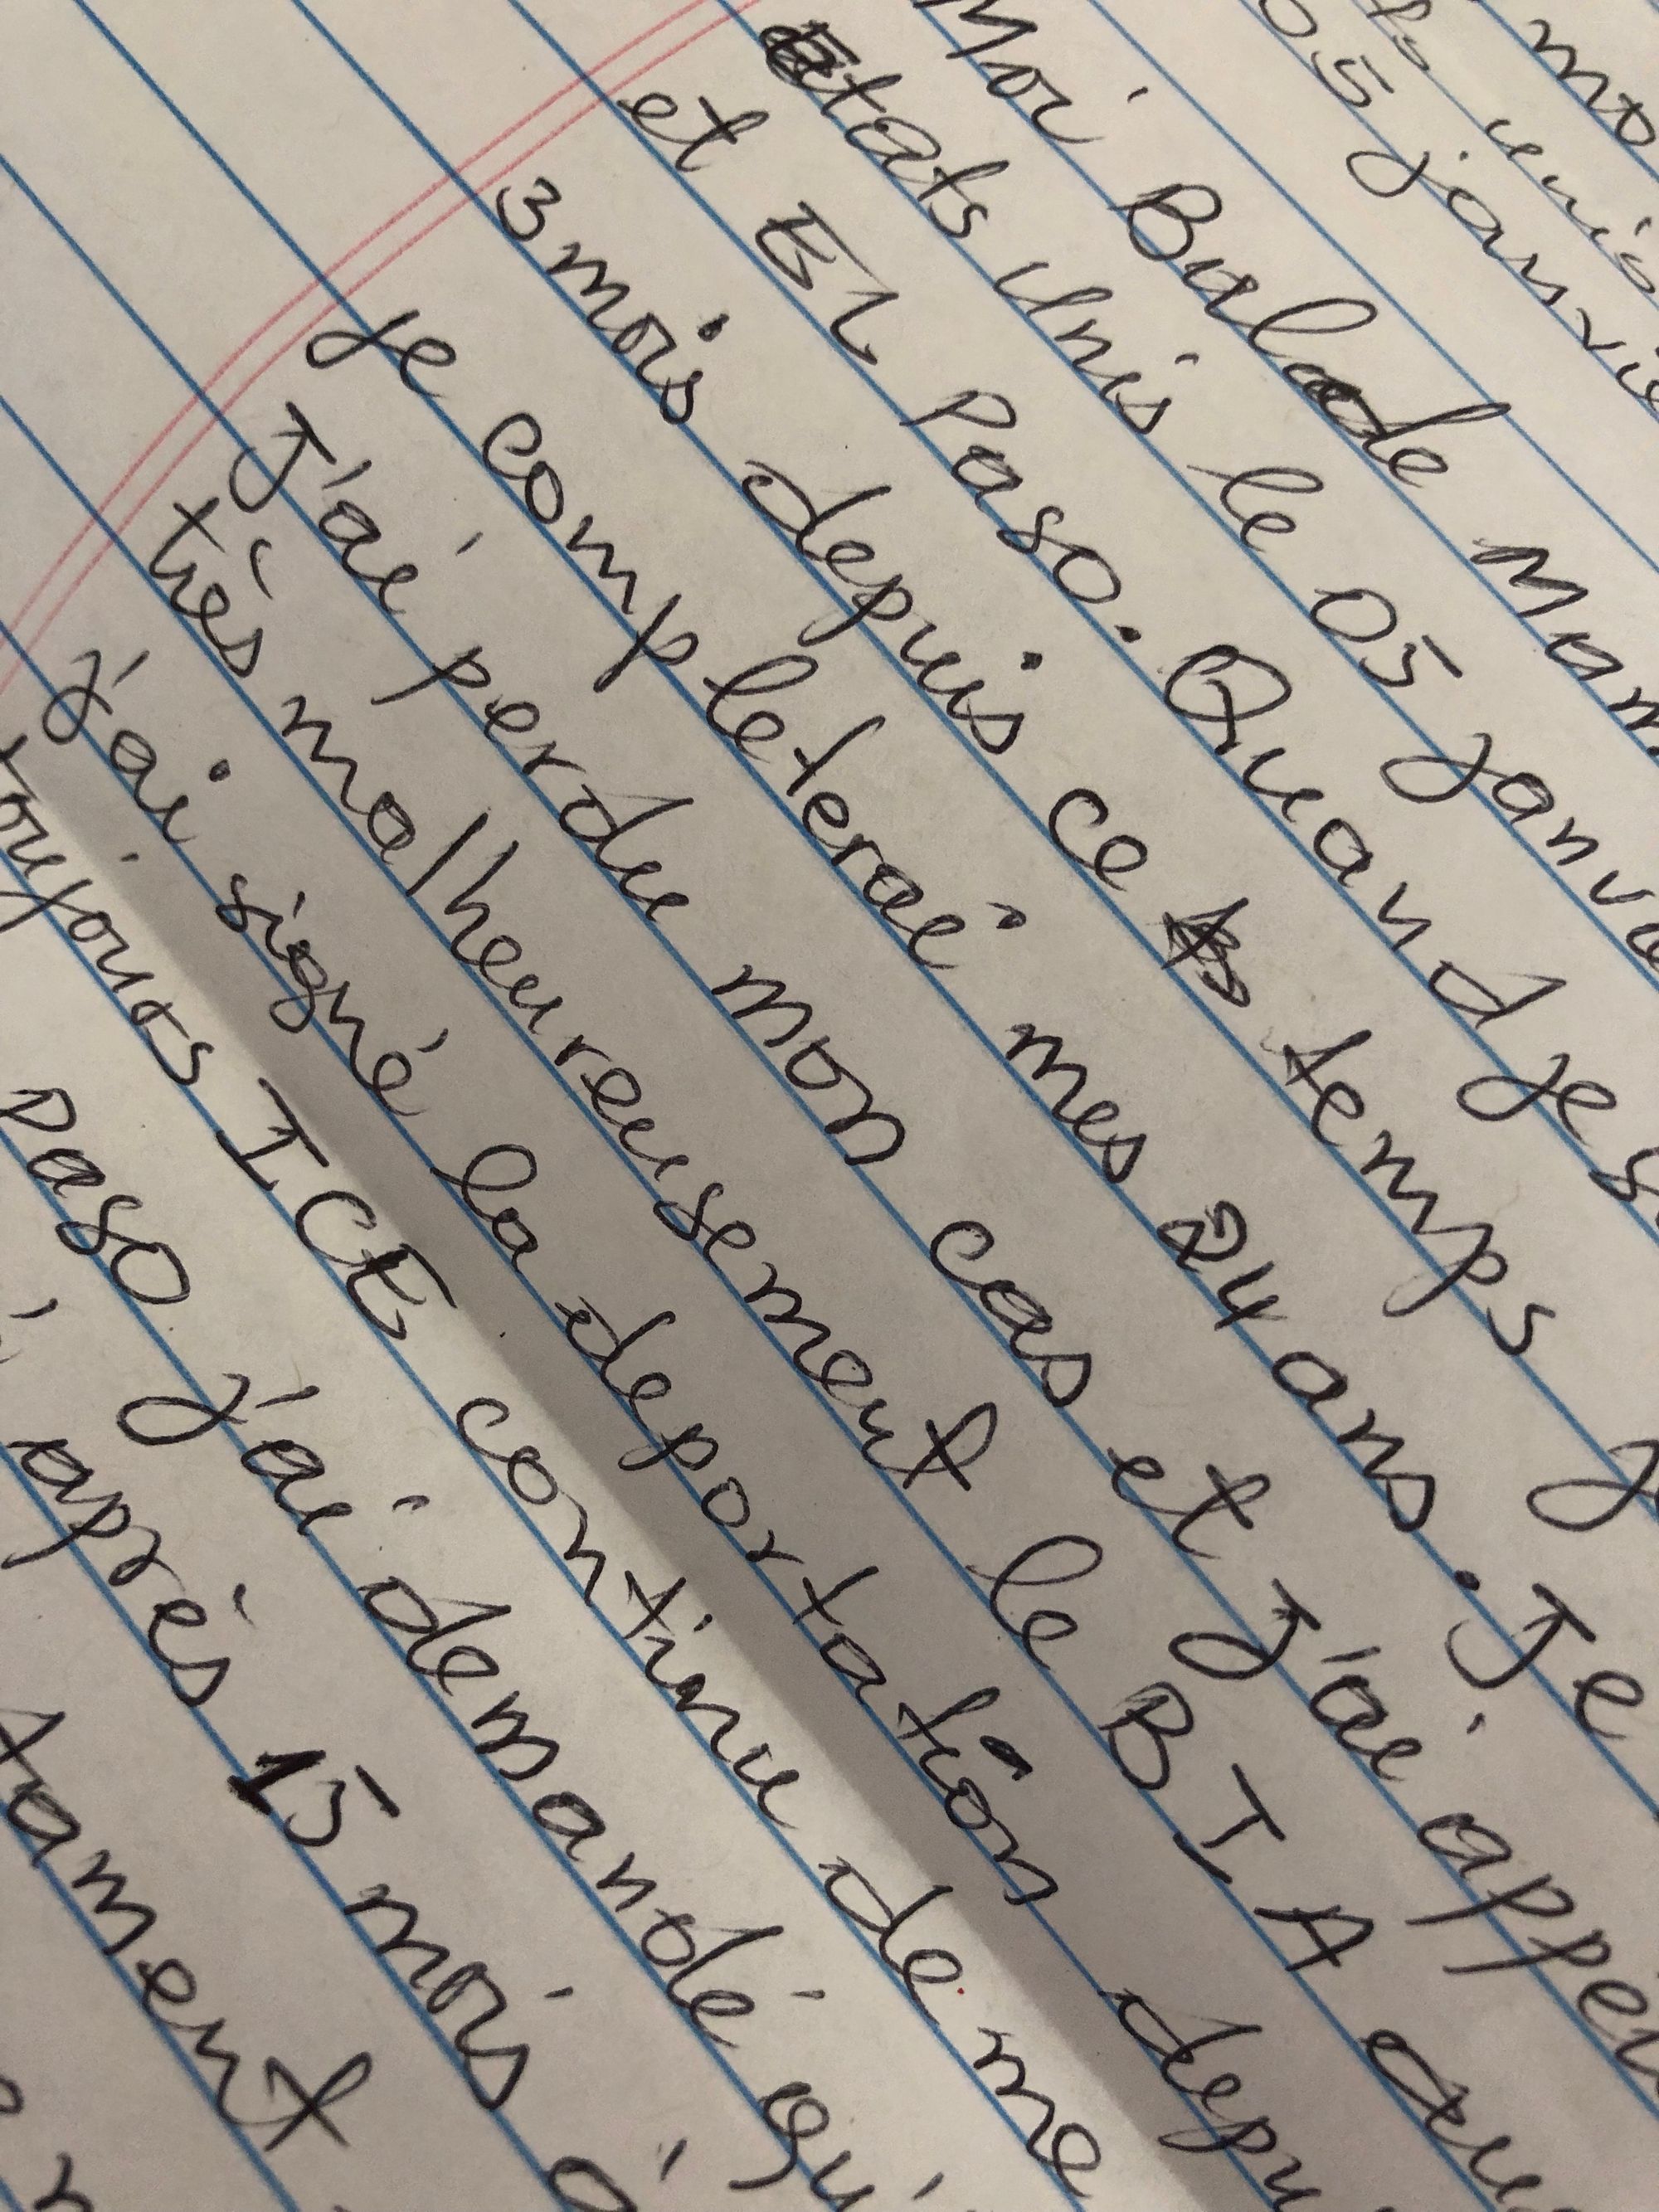 mo
unis
05 janvie
Moi Balde Mam
Etats Unis le 05 Janv
et El Paso. Quand je s
3 mois depuis ce temps J
je completerai mes 24 ans. Je
J'ai perdu mon cas et J'ai appel
très malheureusement le BIA au
j'ai signé la deportation depu
toujours ICE continu de me
Paso j'ai demandé qu
après 15 mois à
tament